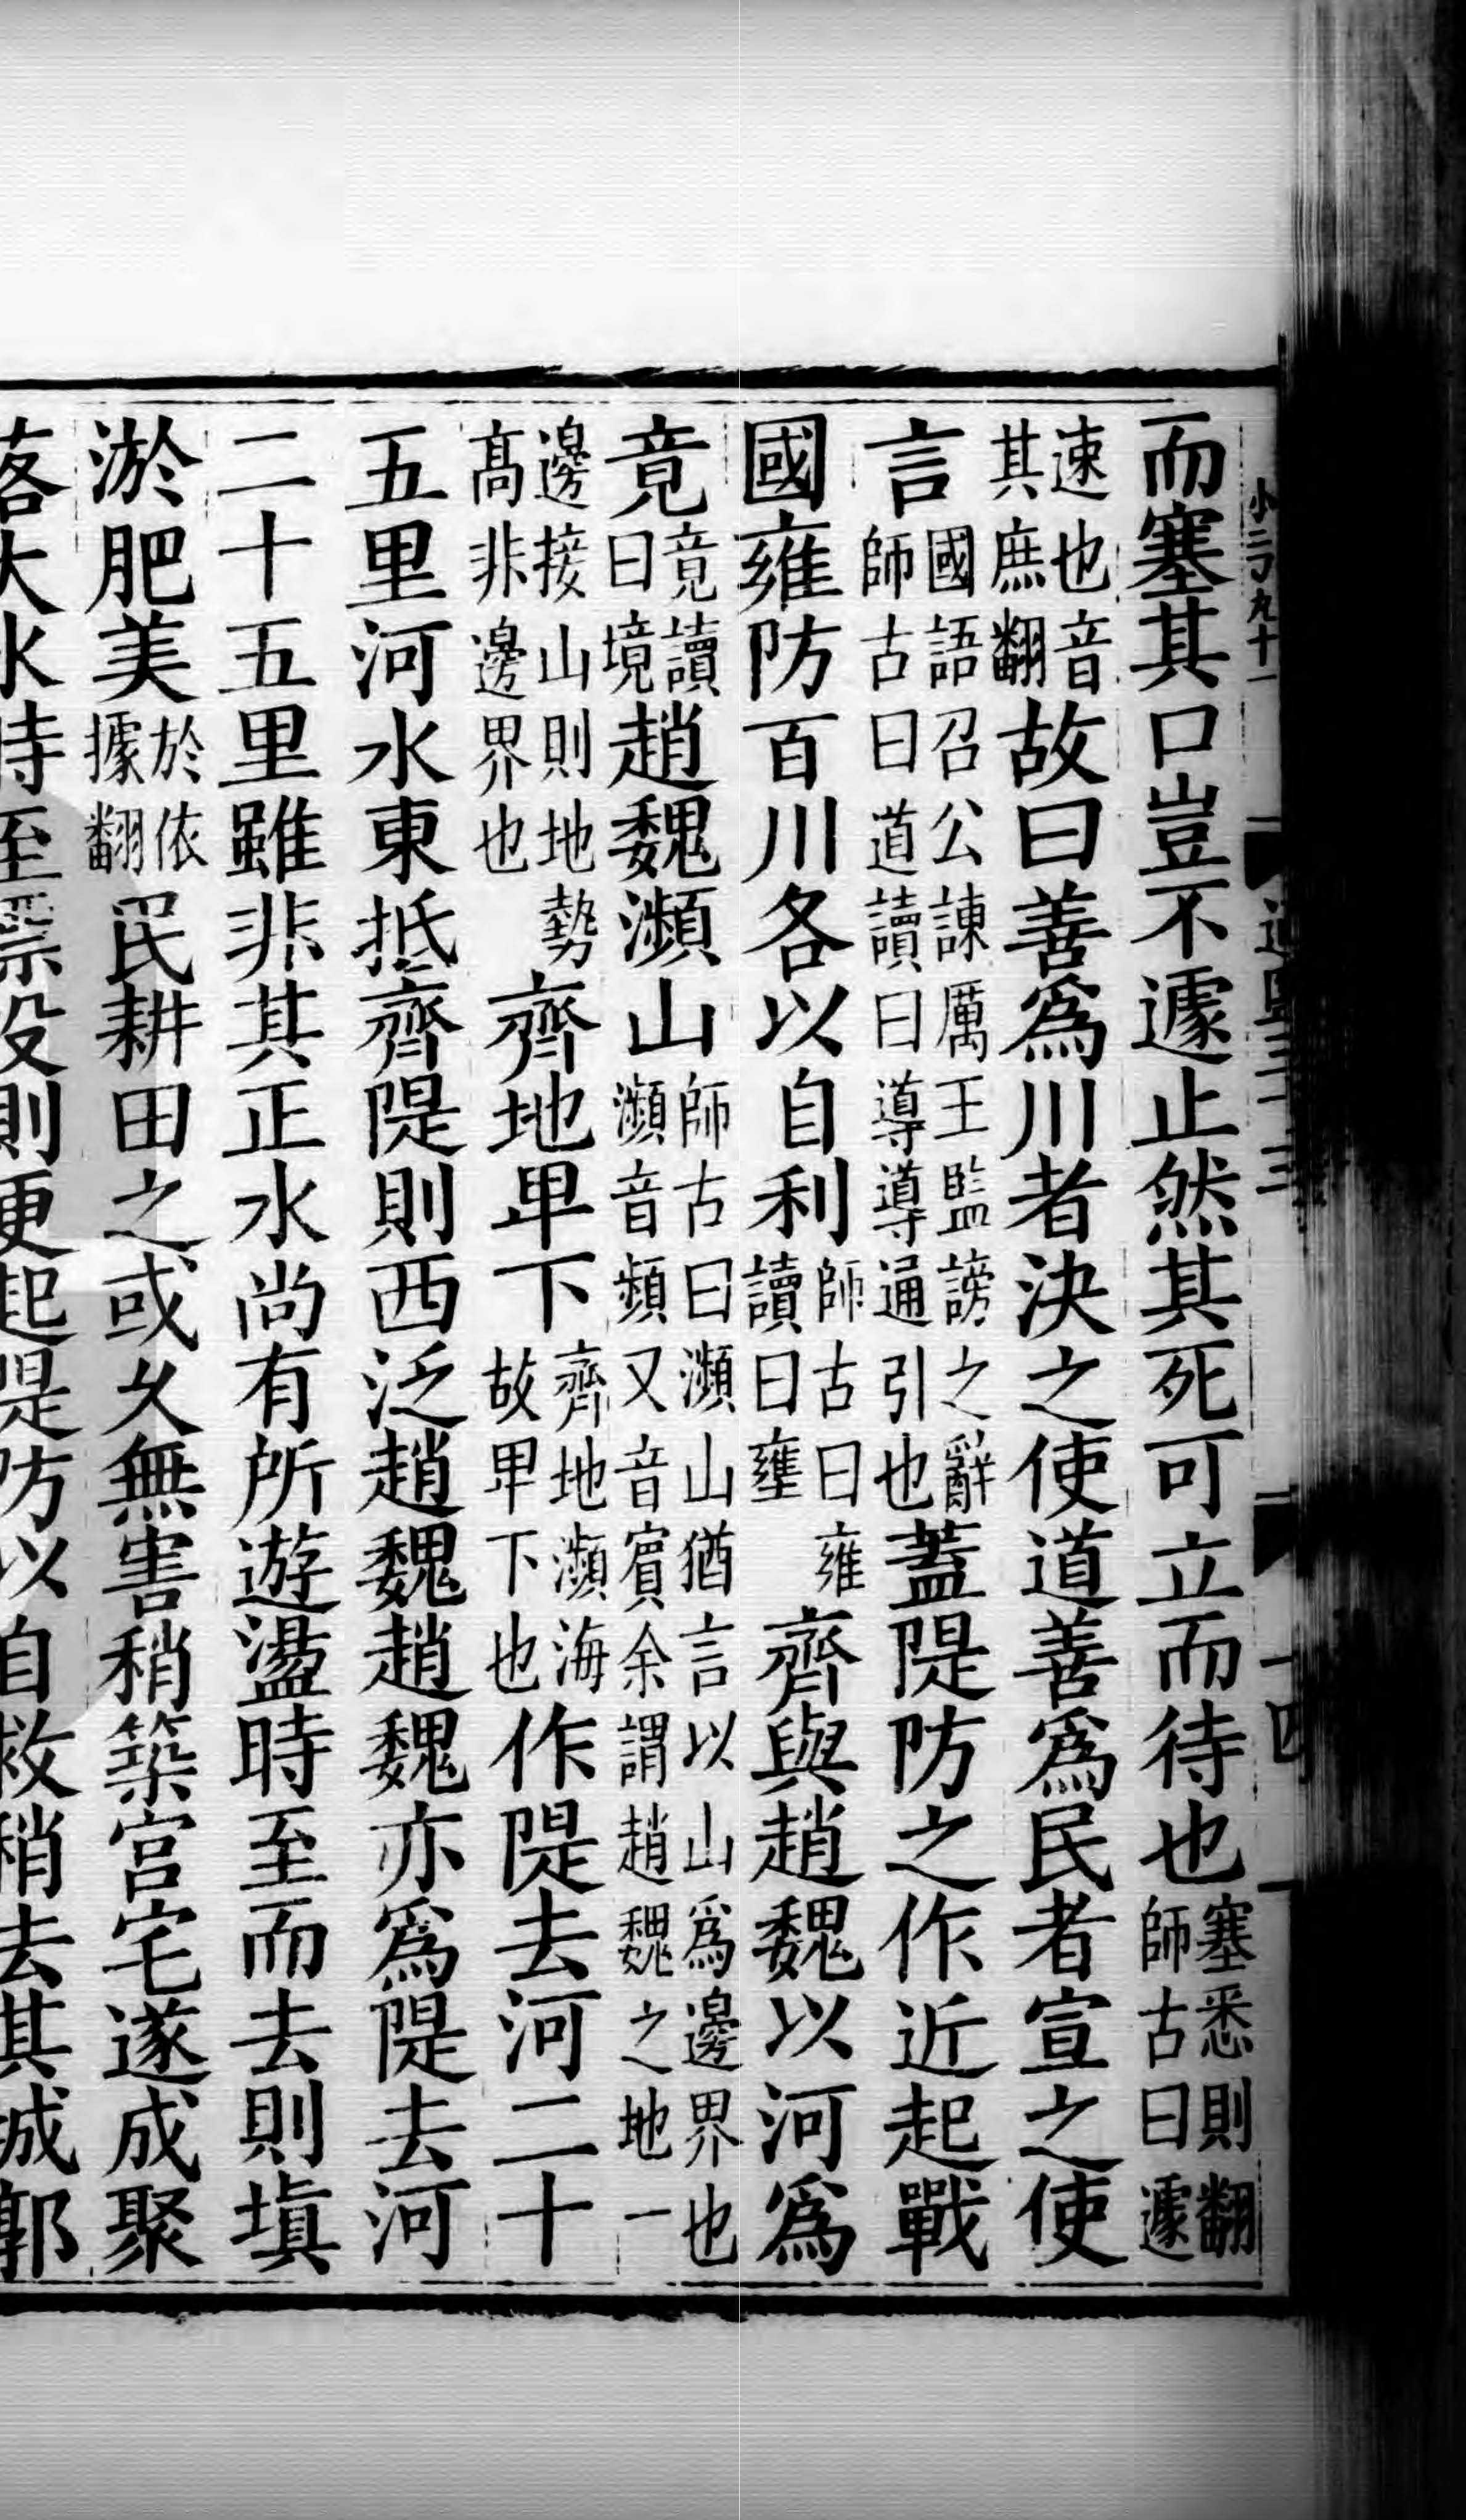 而塞其口豈不遽止然其死可立而待也塞悉則翻師古曰遽
速也音其庶翻故曰善爲川者決之使道善爲民者宣之使
言國語召公諫厲王監謗之辭師古曰道讀曰導導通引也蓋隄防之作近起戰
國雍防百川各以自利師古曰雍讀曰壅齊與趙魏以河爲
竟竟讀曰境趙魏瀕山師古曰瀕山猶言以山爲邊界也瀕音頻又音賓余謂趙魏之地一
邊接山則地勢高非邊界也齊地卑下齊地瀕海故卑下也作隄去河二十
五里河水東抵齊隄則西泛趙魏趙魏亦爲隄去河
二十五里雖非其正水尚有所遊盪時至而去則塡
淤肥美於依據翻民耕田之或久無害稍築宮宅遂成聚
落大水時至漂没則更起隄防以自救稍去其城郭
小三丂九十一
四